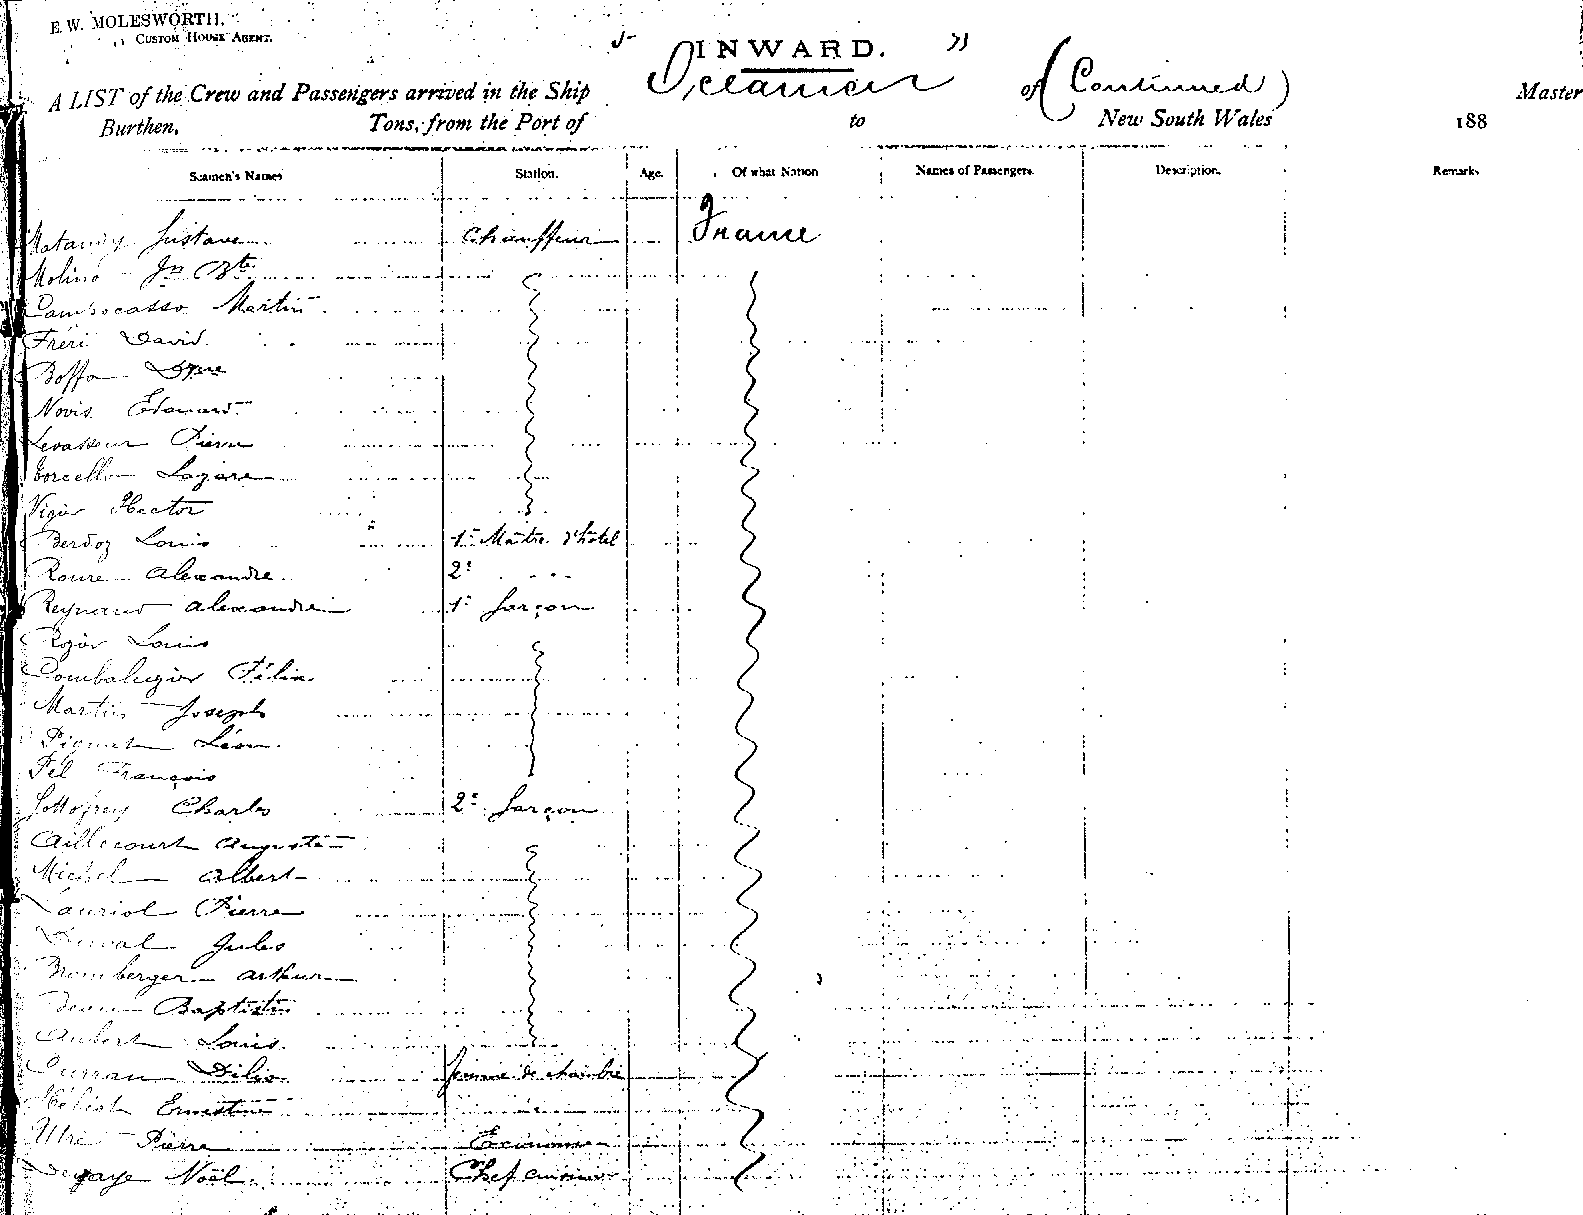 E. W. MOLESWORTH,
CUSTOM HOUSE AGENT.
INWARD.
A LIST of the Crew and Passengers arrived in the Ship "Oceanien" of (Continued) Master
Burthen, Tons, from the Port of to New South Wales 188
Seamen's Names Station. Age. Of what Nation Names of Passengers. Description. Remarks
Gustave Chauffeur France
Molino Jn Bte
Campocasso Martin
Fréri David
Boffa
Novis Edouard
Levasseur Pierre
Torcello Lazare
Vigier Hector
Berdoz Louis 1er Maître d'hôtel
Roure Alexandre 2e " "
Reynaud Alexandre 1er Garçon
Rogier Louis
Combaluzier Félix
Martin Joseph
Piquet Léon
Fél François
Gottofrey Charles 2e Garçon
Aillecourt Auguste
Michel Albert
Lauriol Pierre
Duval Jules
Bromberger Arthur
Baptistin
Aubert Louis
Curran femme de chambre
Ernestine
Pierre Econome
Noël Chef cuisinier